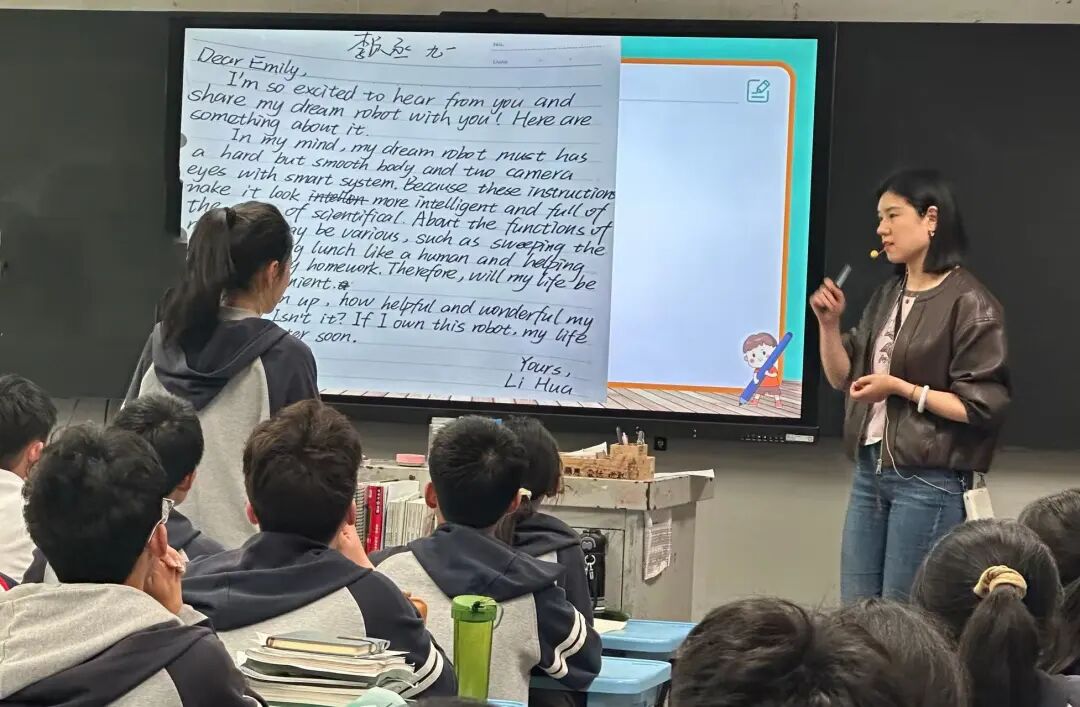 Dear Emily,
I'm so excited to hear from you and
share my dream robot with you! Here are
something about it.
In my mind, my dream robot must has
a hard but smooth body and two camera
eyes with smart system. Because these instructions
make it look more intelligent and full of
the of scientifical. About the functions of
may be various, such as sweeping the
lunch like a human and helping
homework. Therefore, will my life be
up, how helpful and wonderful my
Isn't it? If I own this robot, my life
soon.
Yours,
Li Hua